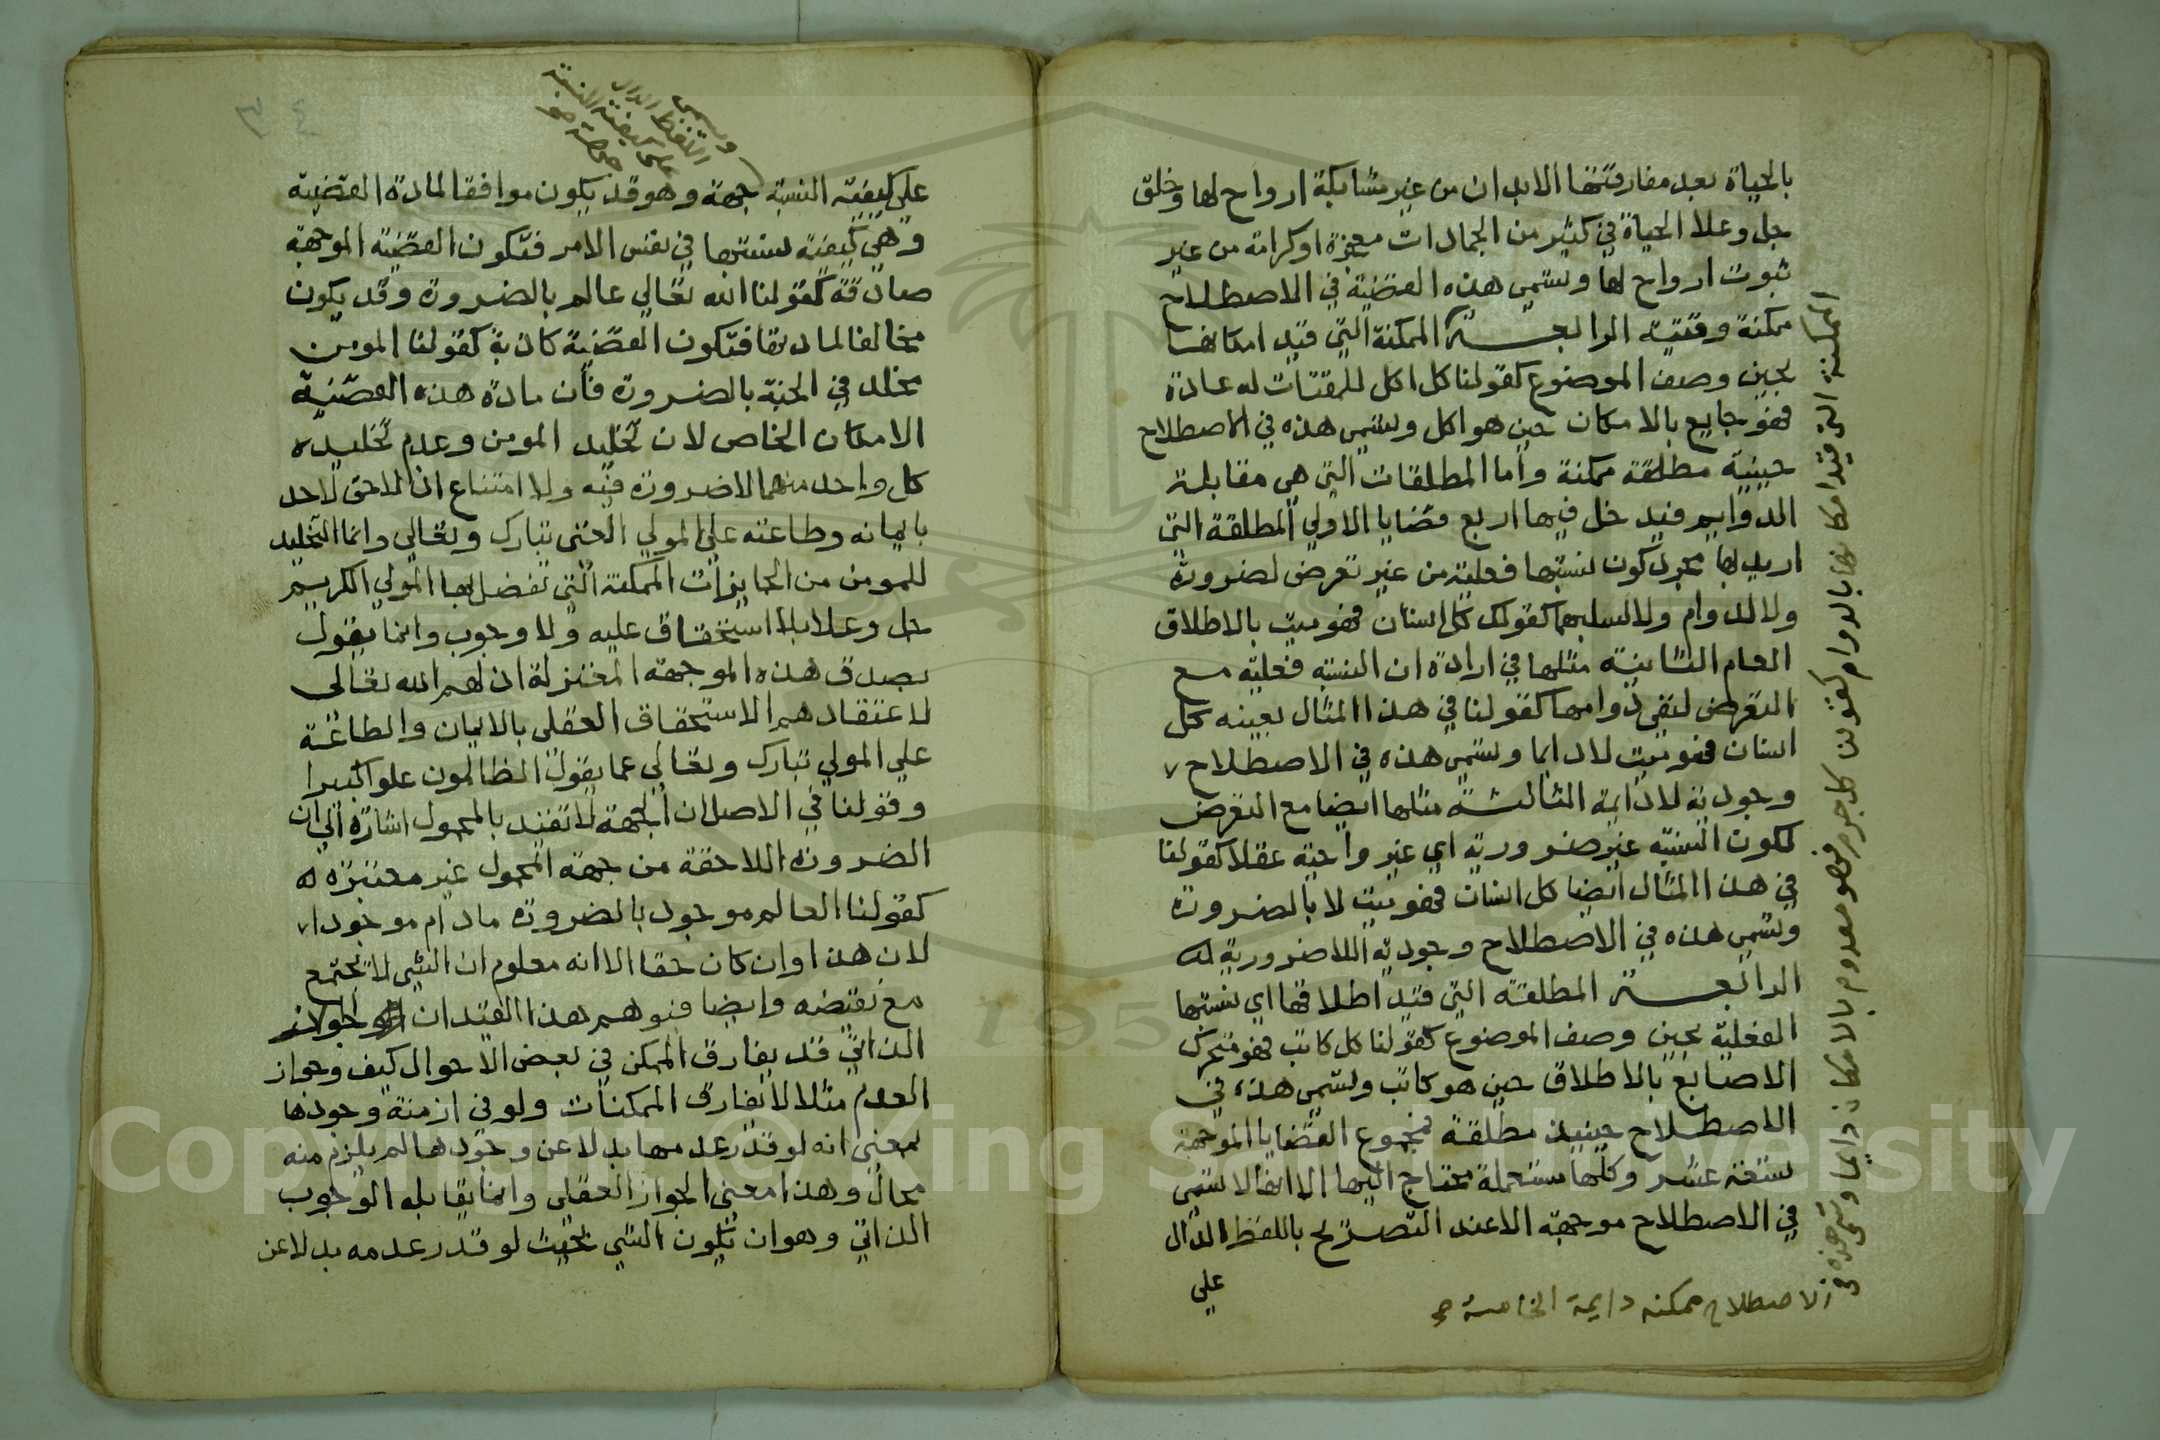 بالحياة بعد مفارقتها الابدان من غير مشابكة ارواح لها وخلق
جل وعلا الحياة في كثير من الجمادات معجزة او كرامة من غير
ثبوت ارواح لها وتسمى هذه القضية في الاصطلاح
ممكنة وقتية الرابعة الممكنة التي قيد امكانها
بحين وصف الموضوع كقولنا كل اكل للمقتات له عادة
فهو جايع بالامكان حين هو اكل وتسمى هذه في الاصطلاح
حينية مطلقة ممكنة واما المطلقات التي هي مقابلة
الدوايم فيدخل فيها اربع قضايا الاولي المطلقة التي
اريد بها مجرد كون نسبتها فعلية من غير تعرض لضرورة
ولا لدوام ولا لسلبهما كقولك كل انسان فهو ميت بالاطلاق
العام الثانية مثلها في ارادة ان النسبة فعلية مع
التعرض لنفي دوامها كقولنا في هذا المثال بعينه كل
انسان فهو ميت لا دايما وتسمى هذه في الاصطلاح
وجودية لا دايمة الثالثة مثلها ايضا مع التعرض
لكون النسبة غير ضرورية اي غير واجبة عقلا كقولنا
في هذا المثال ايضا كل انسان فهو ميت لا بالضرورة
وتسمى هذه في الاصطلاح وجودية اللاضرورية
الرابعة المطلقة التي قيد اطلاقها اي نسبتها
الفعلية بحين وصف الموضوع كقولنا كل كاتب فهو متحرك
الاصابع بالاطلاق حين هو كاتب وتسمى هذه في
الاصطلاح حينية مطلقة فمجموع القضايا الموجهة
تسعة عشر وكلها مستعملة محتاج اليها الا انها لا تسمى
في الاصطلاح موجهة الا عند التصريح باللفظ الدال
علي
الممكنة التي قيد امكانها بالدوام كقولنا كل جرم فهو معدوم بالامكان دايما وتسمى هذه في
الاصطلاح ممكنة دايمة الخامسة
وتسمى
اللفظ الدال
على كيفية النسبة
علي كيفية النسبة جهة وهو قد يكون موافقا لمادة القضية
وهي كيفية نسبتها في نفس الامر فتكون القضية الموجهة
صادقة كقولنا الله تعالي عالم بالضرورة وقد يكون
مخالفا لمادتها فتكون القضية كاذبة كقولنا المومن
مخلد في الجنة بالضرورة فان مادة هذه القضية
الامكان الخاص لان تخليد المومن وعدم تخليده
كل واحد منهما لا ضرورة فيه ولا امتناع اذ لا حق لاحد
بايمانه وطاعته علي المولي الغني تبارك وتعالي وانما التخليد
للمومن من الجايزات الممكنة التي تفضل بها المولي الكريم
جل وعلا بلا استحقاق عليه ولا وجوب وانما يقول
بصدق هذه الموجهة المعتزلة اذلهم الله تعالى
لاعتقادهم الاستحقاق العقلي بالايمان والطاعة
علي المولي تبارك وتعالي عما يقول الظالمون علوا كبيرا
وقولنا في الاصل ان الجهة لا تقيد بالمحمول اشارة الي ان
الضرورة اللاحقة من جهة المحمول غير معتبرة
كقولنا العالم موجود بالضرورة ما دام موجودا
لان هذا وان كان حقا الا انه معلوم ان الشي لا يجتمع
مع نقيضه وايضا فيوهم هذا القيد ان الجواز
الذاتي قد يفارق الممكن في بعض الاحوال كيف وجواز
العدم مثلا لا يفارق الممكنات ولو في ازمنة وجودها
بمعنى انه لو قدر عدمها بدلا عن وجودها لم يلزم منه
محال وهذا معنى الجواز العقلي وانما يقابله الوجوب
الذاتي وهو ان تكون الشي بحيث لو قدر عدمه بدلا عن
Copyright © King Saud University